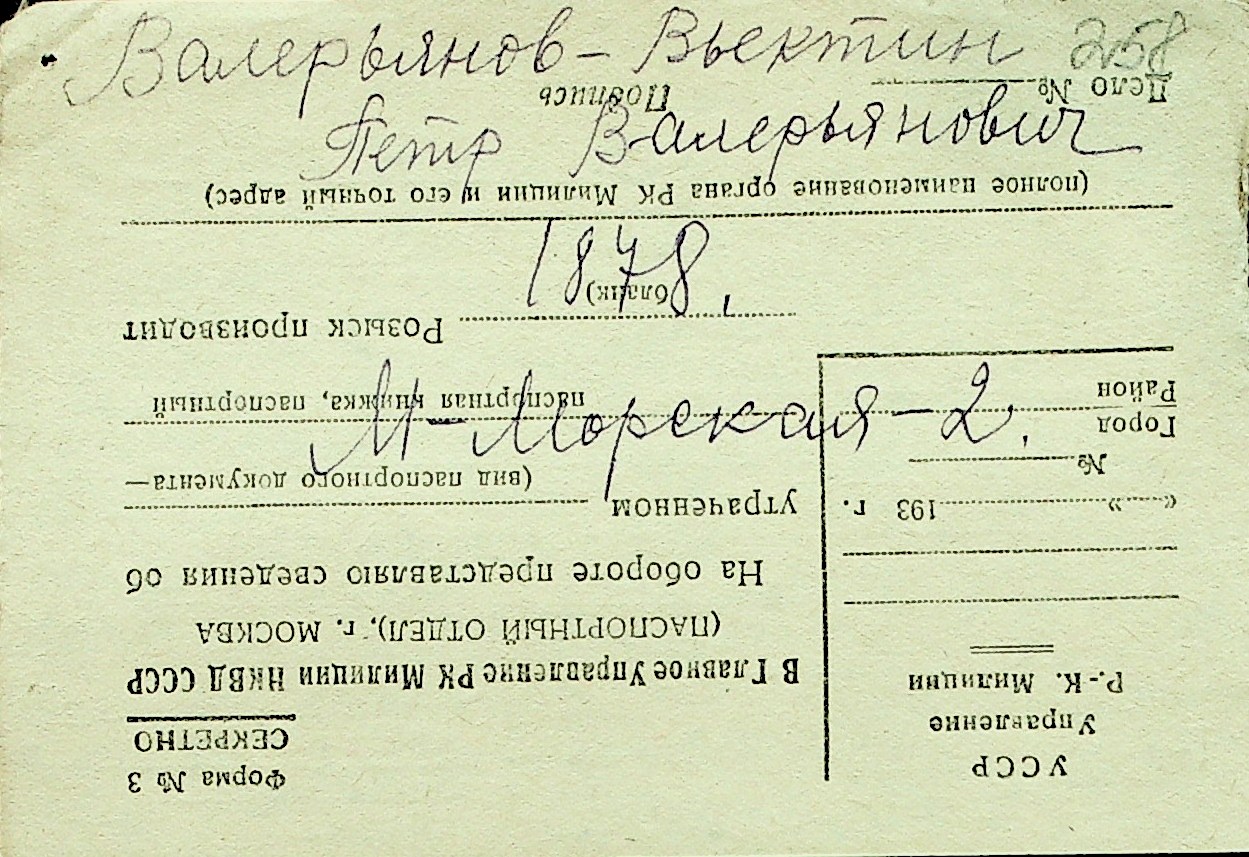 Валерьянов-Вьектин 258
Петр Валерьянович
1878.
М-Морская-2.
УССР
Управление
Р.-К. Милиции
« » 193 г.
№
Город
Район
Форма № 3
СЕКРЕТНО
В Главное Управление РК Милиции НКВД СССР
(ПАСПОРТНЫЙ ОТДЕЛ), г. МОСКВА
На обороте представляю сведения об
утраченном
(вид паспортного документа—
паспортная книжка, паспортный
бланк)
Розыск производит
(полное наименование органа РК Милиции и его точный адрес)
Дело №
Подпись